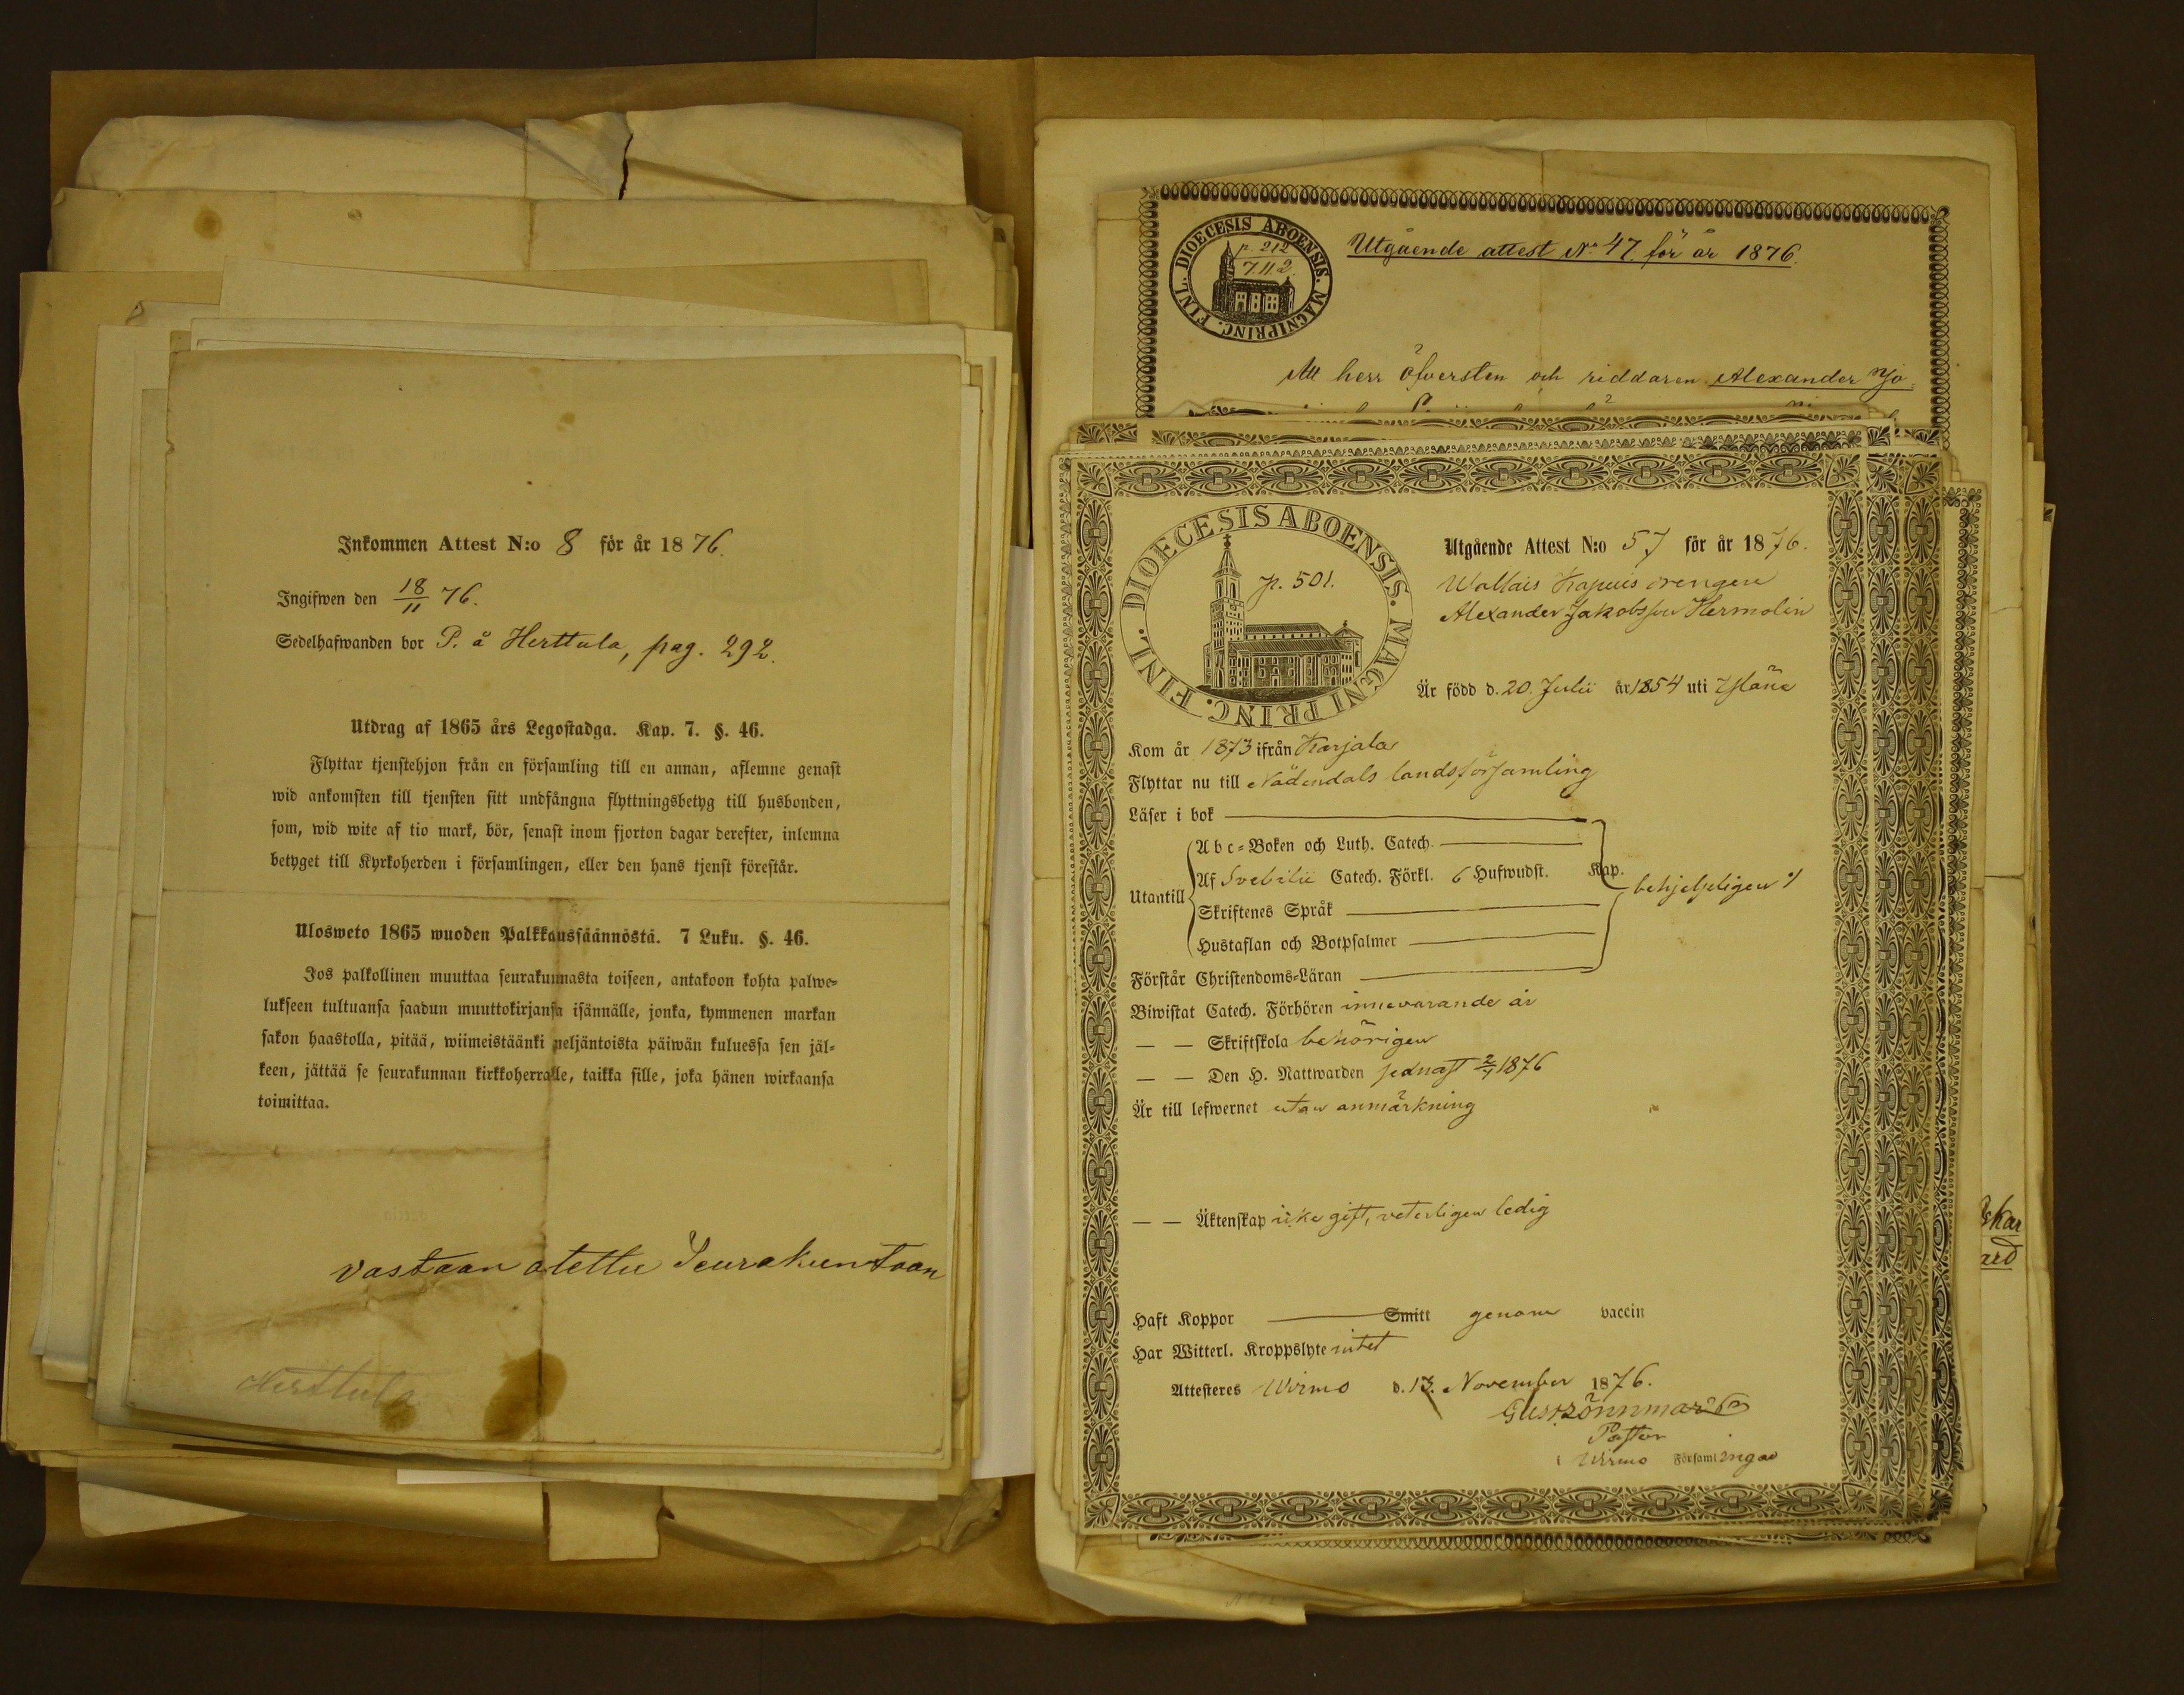 Inkommen Attest N:o 8 för år 1876.
Ingifwen den 18/11 76.
Sedelhafwanden bor P. å Herttula, pag. 292.
Utdrag af 1865 års Legostadga. Kap. 7. §. 46.
Flyttar tjenstehjon från en församling till en annan, aflemne genast
wid ankomsten till tjensten sitt undfångna flyttningsbetyg till husbonden,
som, wid wite af tio mark, bör, senast inom fjorton dagar derefter, inlemna
betyget till Kyrkoherden i församlingen, eller den hans tjenst förestår.
Ulosweto 1865 wuoden Palkkaussäännöstä. 7 Luku. §. 46.
Jos palkollinen muuttaa seurakunnasta toiseen, antakoon kohta palwe-
lukseen tultuansa saadun muuttokirjansa isännälle, jonka, kymmenen markan
sakon haastolla, pitää, wiimeistäänki neljäntoista päiwän kuluessa sen jäl-
keen, jättää se seurakunnan kirkkoherralle, taikka sille, joka hänen wirkaansa
toimittaa.
vastaan otettu Seurakuntaan
Herttula
DIOECESIS ABOENSIS. MAGNI PRINC. FINL.
p. 212
7.11.2.
Utgående attest No 47. för år 1876.
Att herr öfversten och riddaren Alexander
DIOECESIS ABOENSIS. MAGNI PRINC. FINL.
p. 501.
Utgående Attest N:o 57 för år 1876.
Wallais Kapuis drengen
Alexander Jakobsson Hermolin
Är född d. 20. Julii år 1854 uti Yläne
Kom år 1873 ifrån Karjala
Flyttar nu till Nådendals landsförsamling
Läser i bok
Utantill
Abc-Boken och Luth. Catech.
Af Svebilii Catech. Förkl. 6 Hufwudst. Kap.
behjelpligen
Skriftenes Språk
Hustaflan och Botpsalmer
Förstår Christendoms-Läran
Biwistat Catech. Förhören innevarande år
— — Skriftskola behörigen
— — Den H. Nattwarden sednast 2/4 1876
Är till lefwernet utan anmärkning
— — Äktenskap icke gift, veterligen ledig
Haft Koppor Smitt genom vaccin
Har Witterl. Kroppslyte intet
Attesteres Wirmo d. 13. November 1876.
Pastor
i Wirmo Församlingar